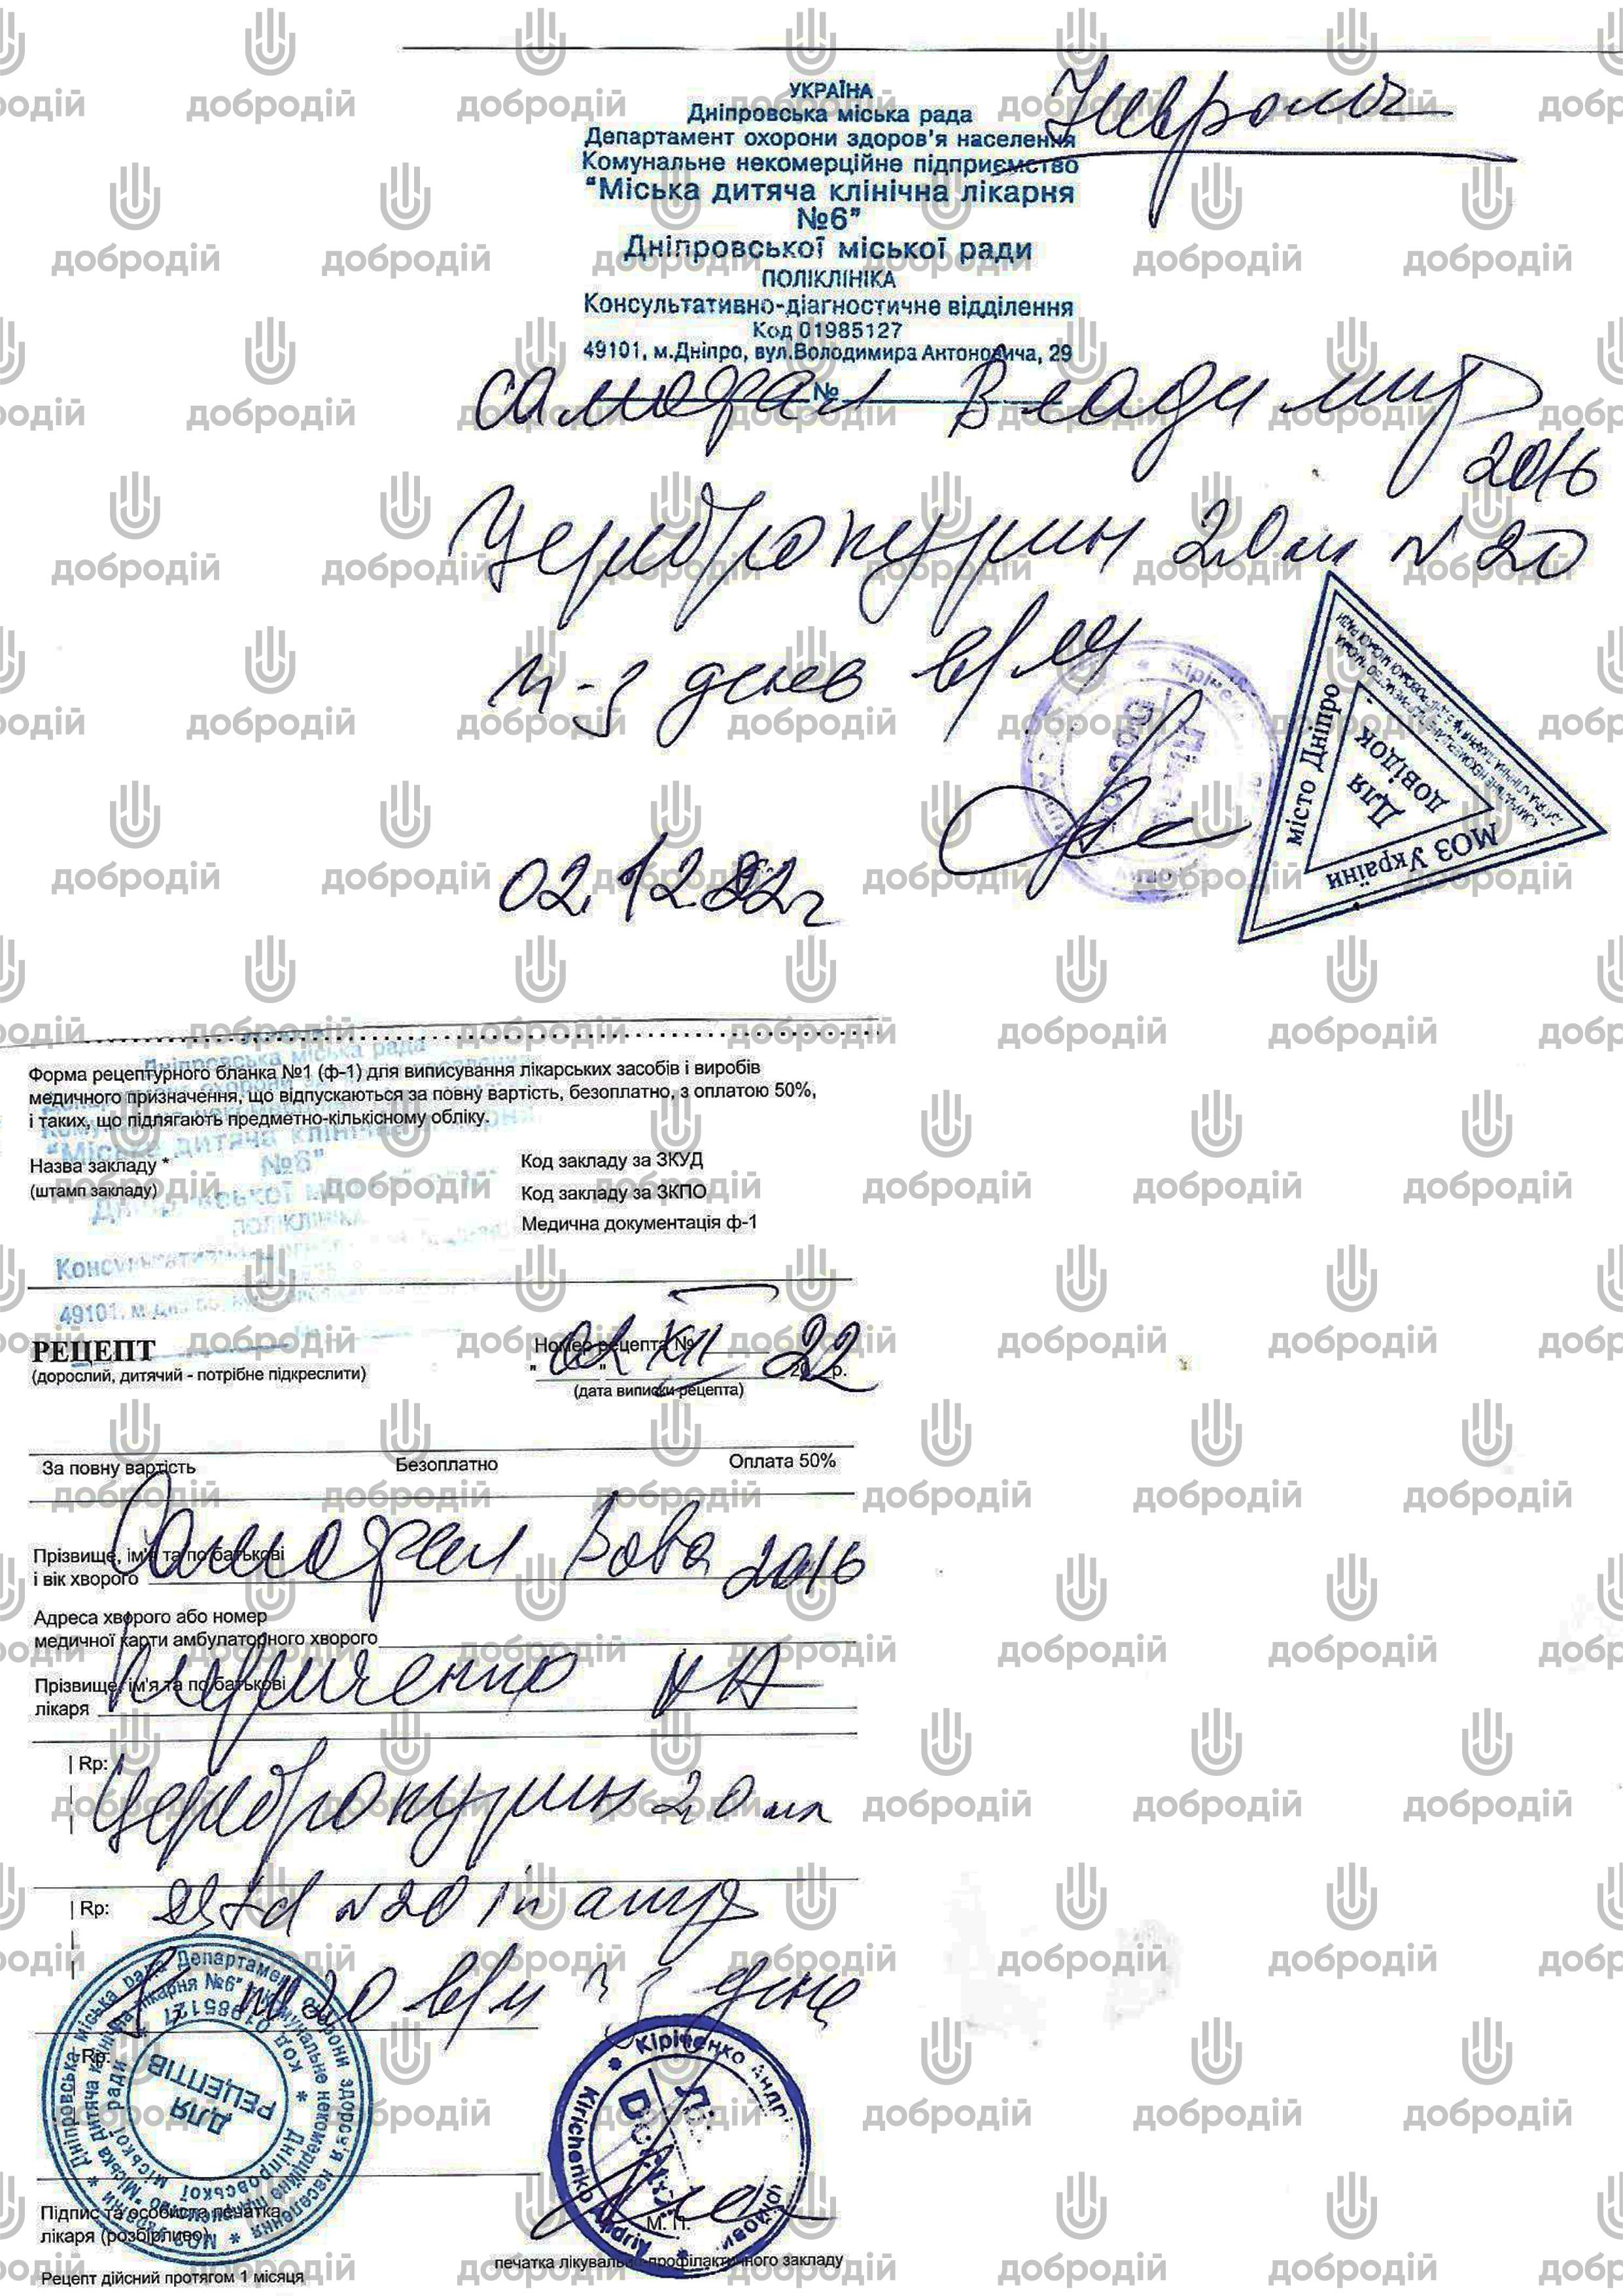 Невролог
УКРАЇНА
Дніпровська міська рада
Департамент охорони здоров'я населення
Комунальне некомерційне підприємство
"Міська дитяча клінічна лікарня
№6"
Дніпровської міської ради
ПОЛІКЛІНІКА
Консультативно-діагностичне відділення
Код 01985127
49101, м.Дніпро, вул.Володимира Антоновича, 29
№
Самофал Владимир
2016
Цереброкурин 2.0 мл N 20
ч-з день в/м
місто Дніпро
Для
довідок
МОЗ України
02.12.22г
Форма рецептурного бланка №1 (ф-1) для виписування лікарських засобів і виробів
медичного призначення, що відпускаються за повну вартість, безоплатно, з оплатою 50%,
і таких, що підлягають предметно-кількісному обліку.
Назва закладу *
(штамп закладу)
Код закладу за ЗКУД
Код закладу за ЗКПО
Медична документація ф-1
РЕЦЕПТ
(дорослий, дитячий - потрібне підкреслити)
Номер рецепта №
02 XII 22
(дата виписки рецепта)
За повну вартість Безоплатно Оплата 50%
Самофал Вова 2016
Прізвище, ім'я та по батькові
і вік хворого
Адреса хворого або номер
медичної карти амбулаторного хворого
Прізвище, ім'я та по батькові
лікаря
Rp:
Цереброкурин 2,0 мл
Rp:
N20 in амп
2,0 в/м ч з день
Rp:
ДЛЯ
РЕЦЕПТІВ
Кіріченко Андрі
Kirichenko Andrii
Підпис та особиста печатка
лікаря (розбірливо)
М. П.
печатка лікувально-профілактичного закладу
Рецепт дійсний протягом 1 місяця
добродій